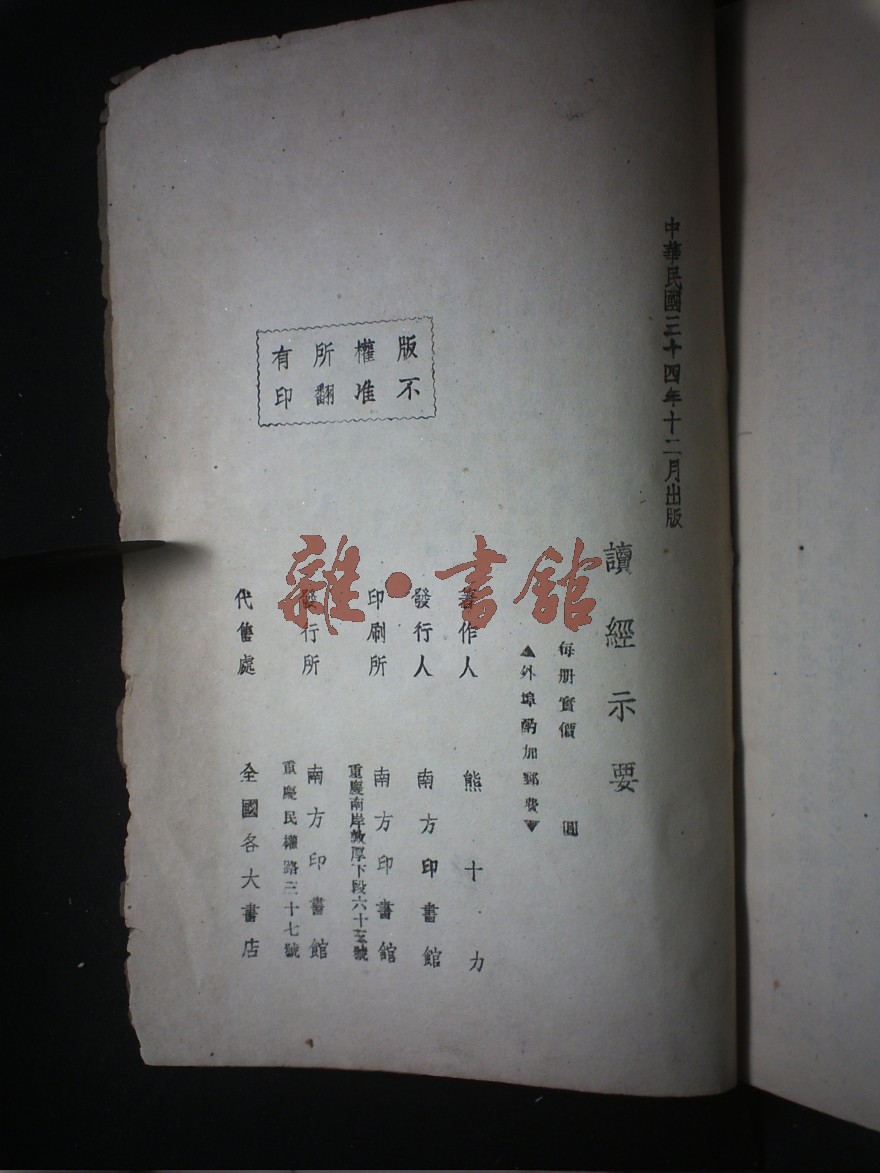 中華民國三十四年十二月出版
讀經示要
每册實價 圓
▲外埠酌加郵費▼
著作人 熊十力
發行人 南方印書館
印刷所 南方印書館
重慶南岸敦厚下段六十至號
發行所 南方印書館
重慶民權路三十七號
代售處 全國各大書店
版權所有
不准翻印
雜·書館